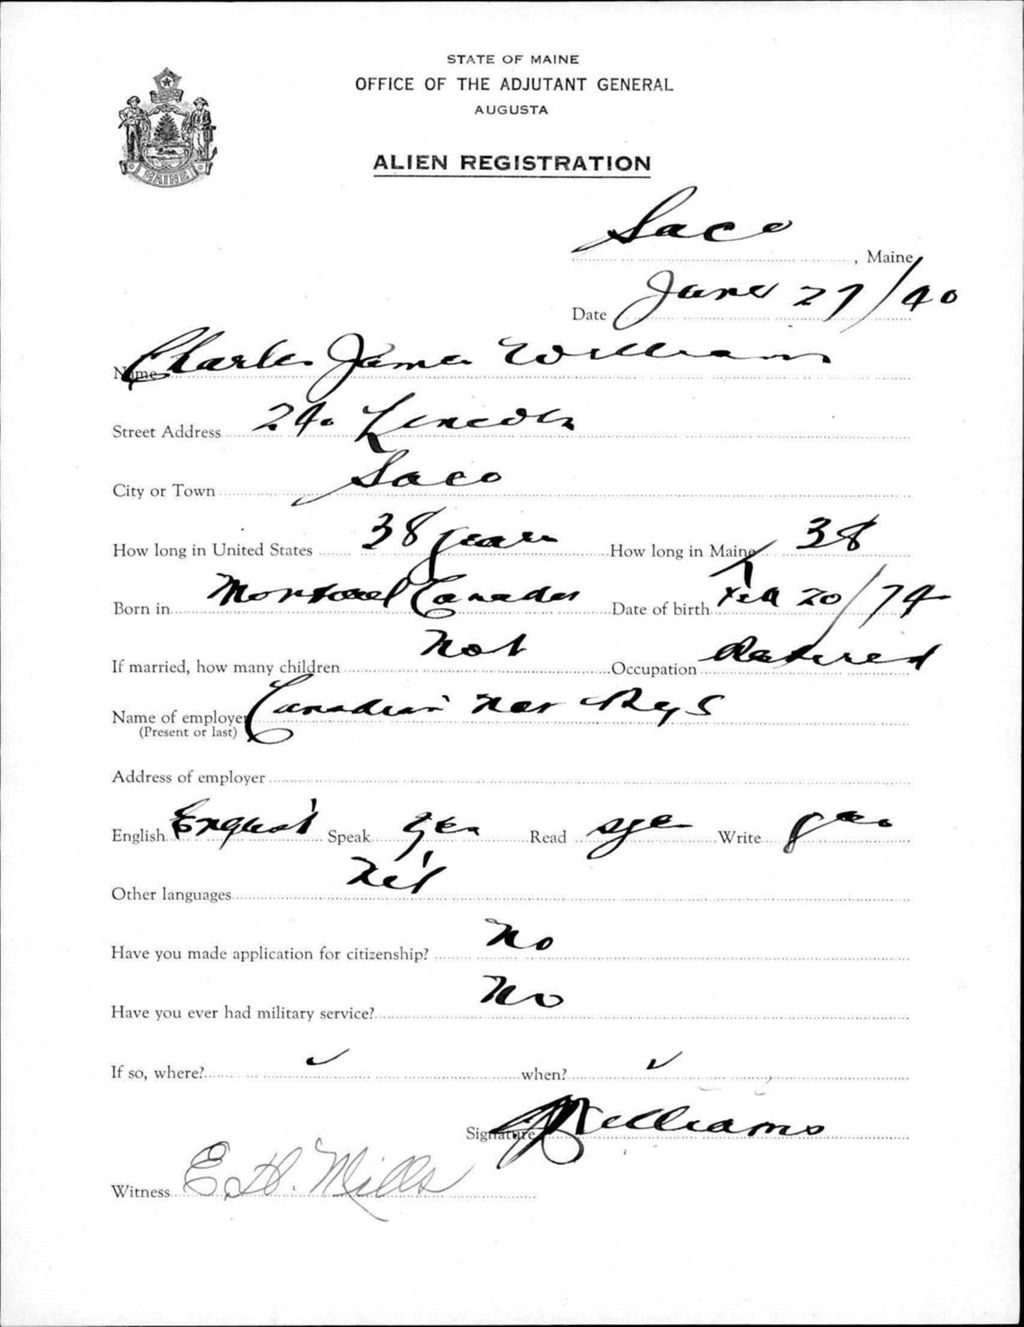 STATE OF MAINE
OFFICE OF THE ADJUTANT GENERAL
AUGUSTA
ALIEN REGISTRATION
MAINE
Saco, Maine
Date June 27/40
Name Charles James Williams
Street Address 24. Lincoln
City or Town Saco
How long in United States 38 years How long in Maine 38
Born in Montreal Canada Date of birth Feb 20/74
If married, how many children Not Occupation Retired
Name of employer Canadian Nat Rys
(Present or last)
Address of employer
English English Speak yes Read yes Write yes
Other languages Nil
Have you made application for citizenship? No
Have you ever had military service? No
If so, where? ✓ when? ✓
Signature Williams
Witness E. H. Mills